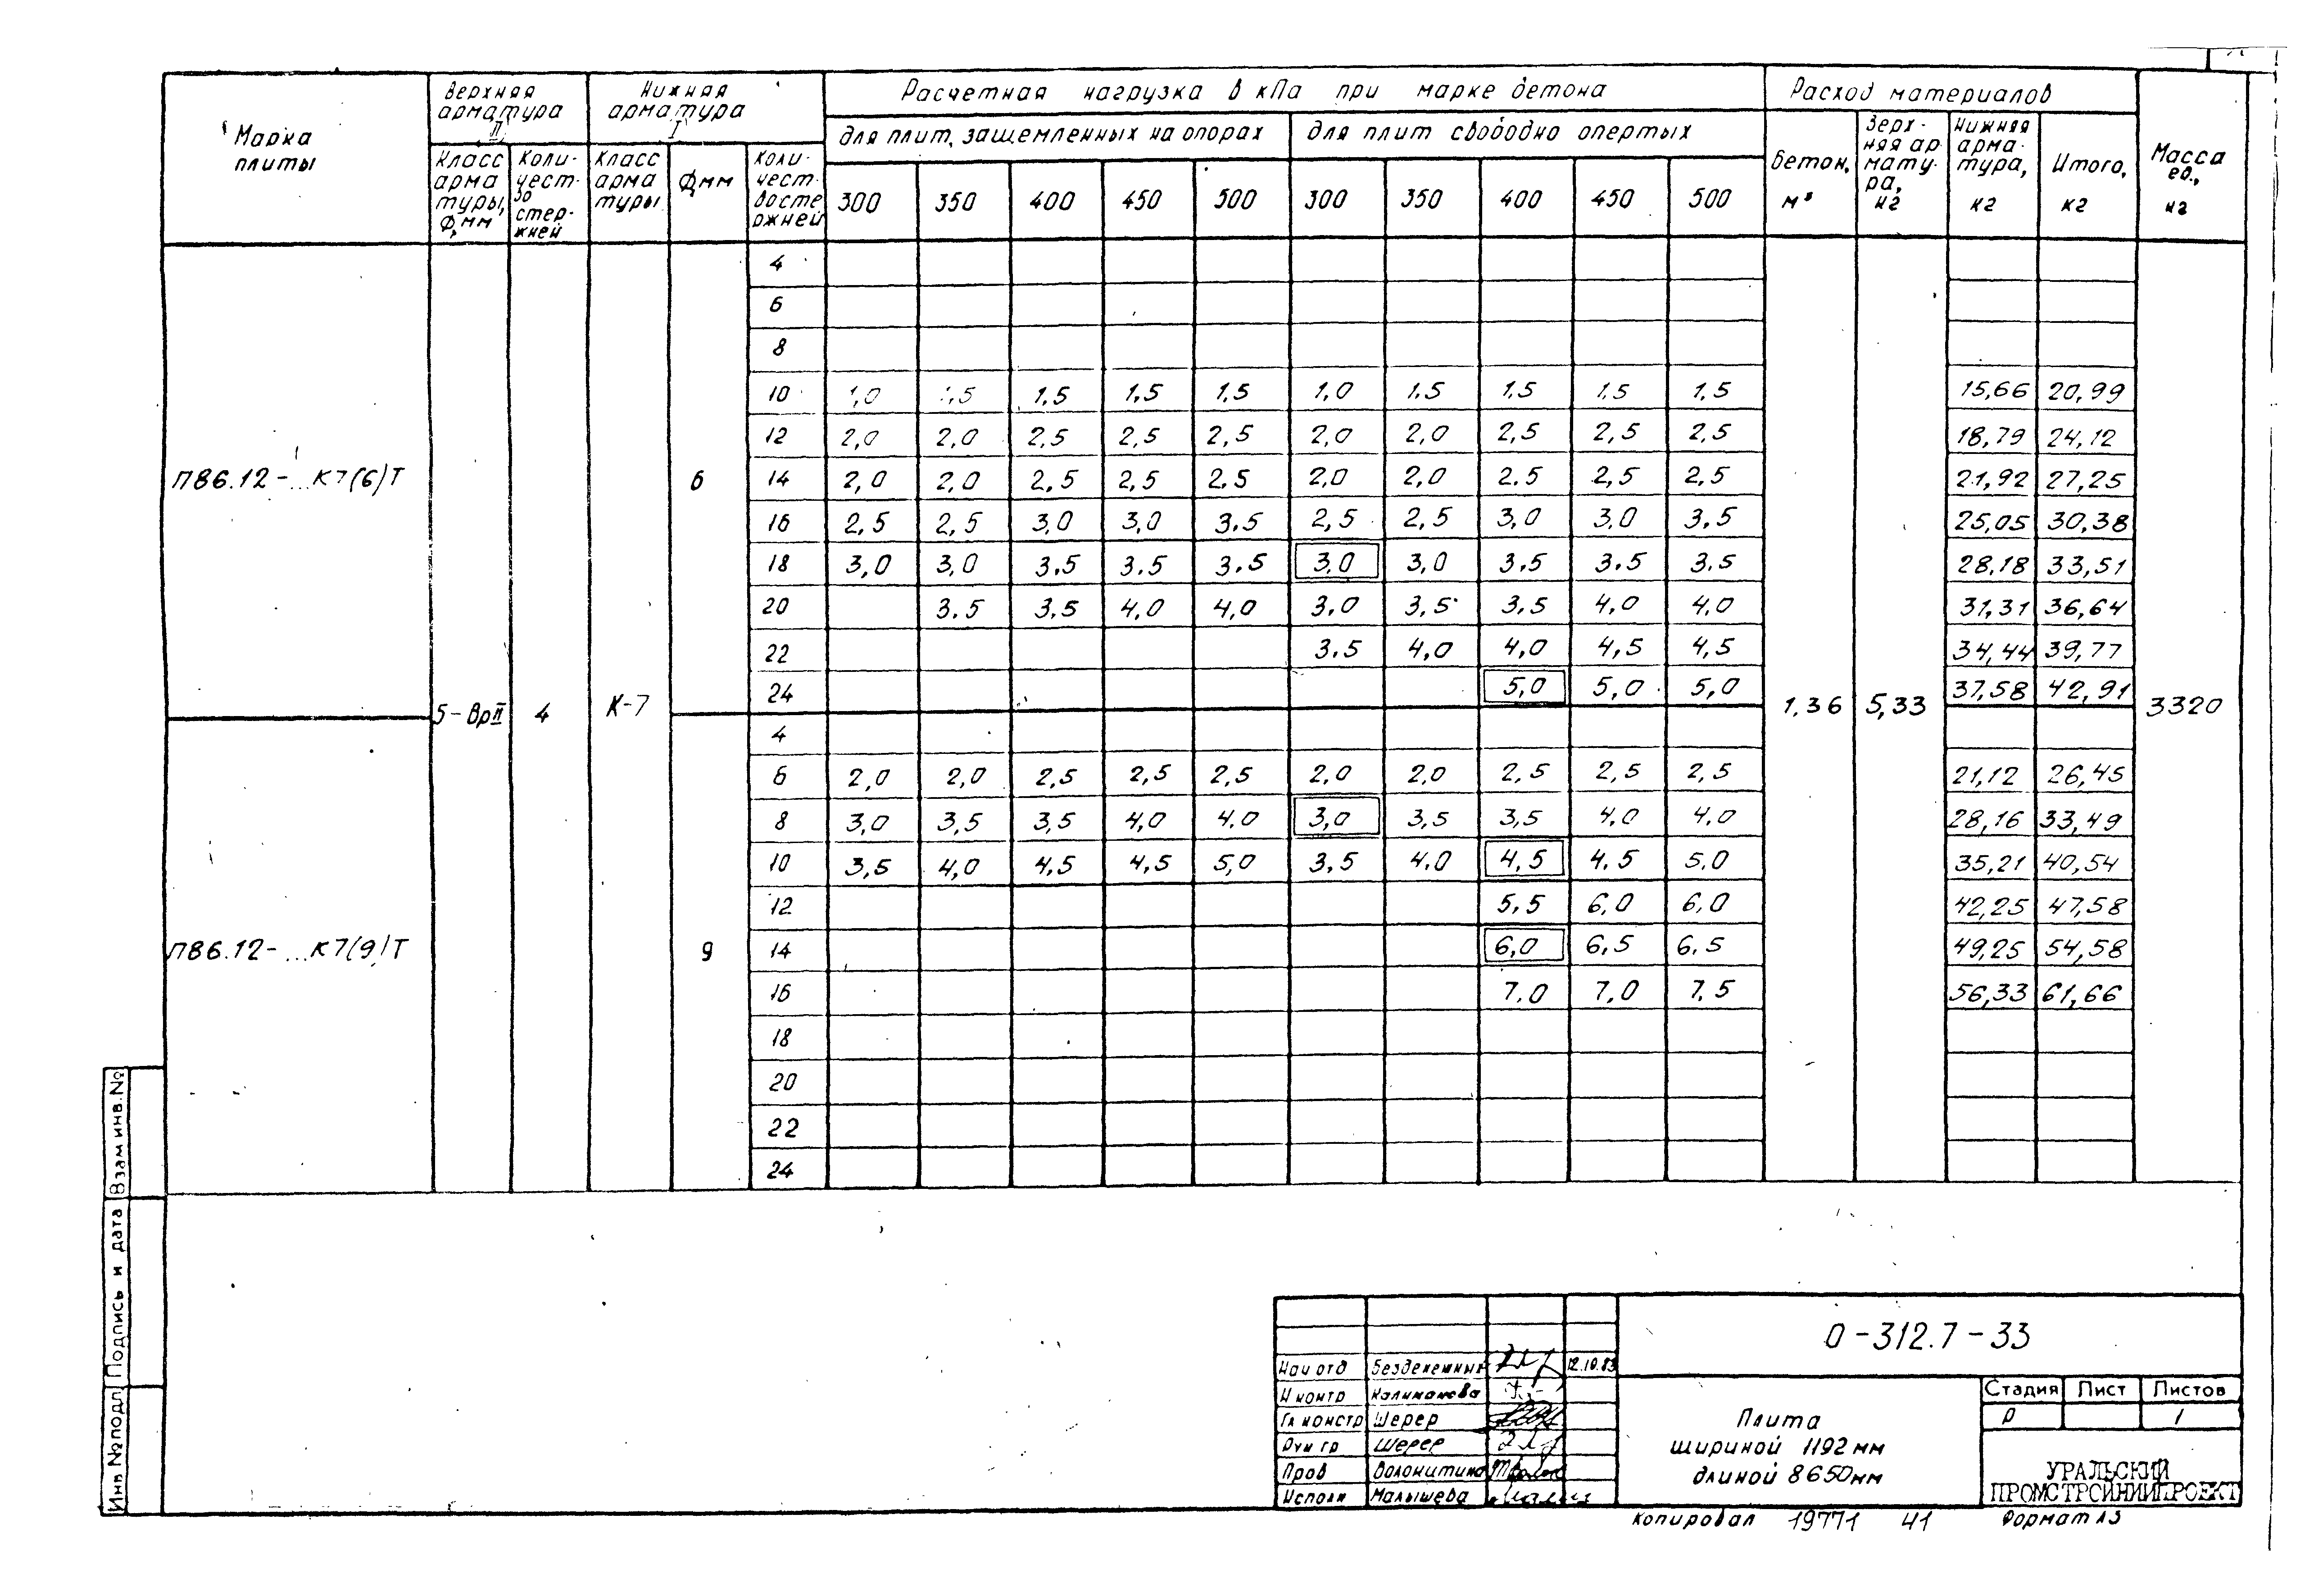 Марка плиты
Верхняя арматура II
Нижняя арматура I
Расчетная нагрузка в кПа при марке бетона
Расход материалов
Масса ед., кг
для плит, защемленных на опорах
для плит свободно опертых
Класс арматуры, Ф, мм
Количество стержней
Класс арматуры
Ф, мм
Количество стержней
300 350 400 450 500 300 350 400 450 500
Бетон, м³
Верхняя арматура, кг
Нижняя арматура, кг
Итого, кг
4
6
8
10 1,0 1,5 1,5 1,5 1,5 1,0 1,5 1,5 1,5 1,5 15,66 20,99
12 2,0 2,0 2,5 2,5 2,5 2,0 2,0 2,5 2,5 2,5 18,79 24,12
П86.12-...К7(6)Т 6 14 2,0 2,0 2,5 2,5 2.5 2,0 2,0 2.5 2,5 2,5 21,92 27,25
16 2,5 2,5 3,0 3,0 3.5 2,5 2,5 3,0 3,0 3,5 25,05 30,38
18 3,0 3,0 3.5 3.5 3.5 3,0 3,0 3,5 3.5 3.5 28,18 33,51
20 3.5 3,5 4,0 4,0 3.0 3,5 3,5 4,0 4,0 31,31 36,64
22 3.5 4,0 4,0 4,5 4,5 34,44 39,77
24 5,0 5,0 5,0 37,58 42,91
5-ВрII 4 К-7 1,36 5,33 3320
4
6 2,0 2,0 2,5 2,5 2,5 2,0 2,0 2,5 2,5 2,5 21,12 26,45
8 3,0 3,5 3,5 4,0 4.0 3,0 3,5 3,5 4,0 4,0 28,16 33,49
10 3,5 4,0 4,5 4,5 5,0 3,5 4,0 4,5 4,5 5,0 35,21 40,54
12 5,5 6,0 6,0 42,25 47,58
П86.12-...К7(9)Т 9 14 6,0 6,5 6,5 49,25 54,58
16 7,0 7,0 7,5 56,33 61,66
18
20
22
24
Взам инв.№
Подпись и дата
Инв №подл
0-312.7-33
Нач отд 12.10.83
Н контр
Гл констр Шерер
Рук гр Шерер
Пров Волокитина
Исполн Малышева
Плита
шириной 1192 мм
длиной 8650мм
Стадия Лист Листов
Р 1
УРАЛЬСКИЙ
ПРОМСТРОЙНИИПРОЕКТ
Копировал 19771 41 Формат А3